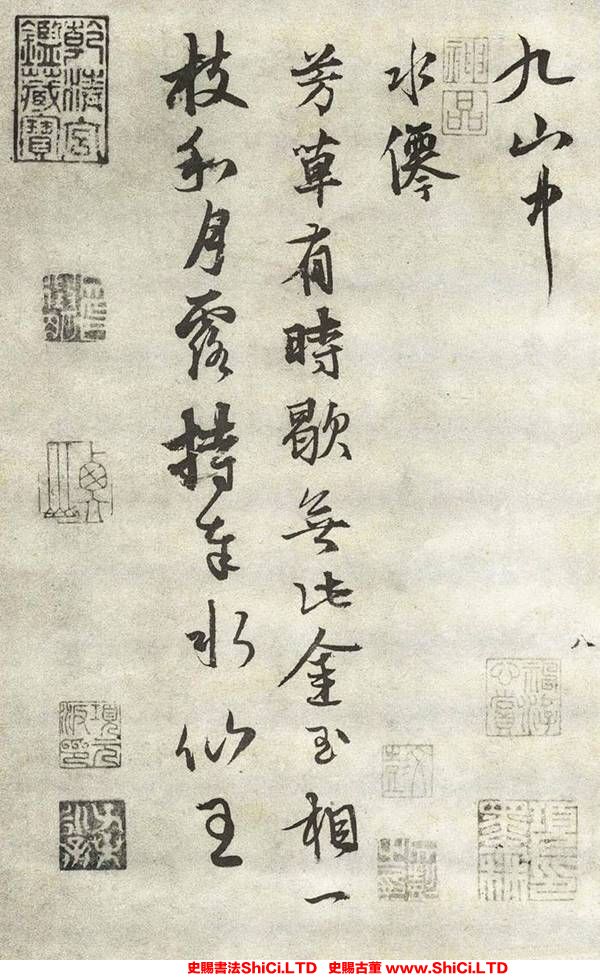 九山中
水僊
芳草有時歇無此金玉相一
枝和月露持奉水仙王
八
神品
乾清宮鑑藏寶
項元汴印
史賜書法ShiCi.LTD 史賜古董 www.ShiCi.LTD